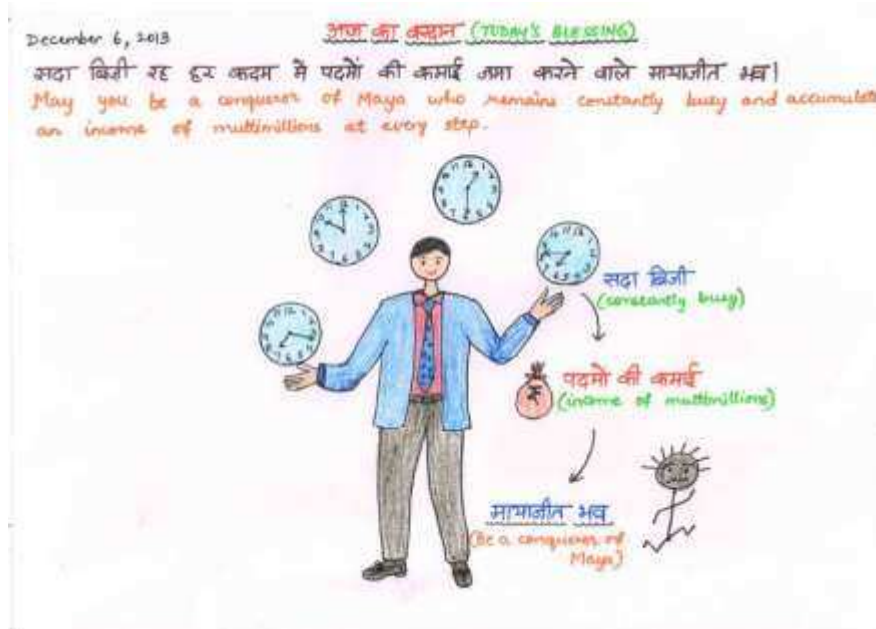 December 6, 2013
आज का वरदान (TODAY'S BLESSING)
सदा बिजी रह हर कदम में पदमों की कमाई जमा करने वाले मायाजीत भव!
May you be a conqueror of Maya who remains constantly busy and accumulate
an income of multimillions at every step.
सदा बिजी
(constantly busy)
पदमों की कमाई
(income of multimillions)
मायाजीत भव
(Be a conqueror of
Maya)